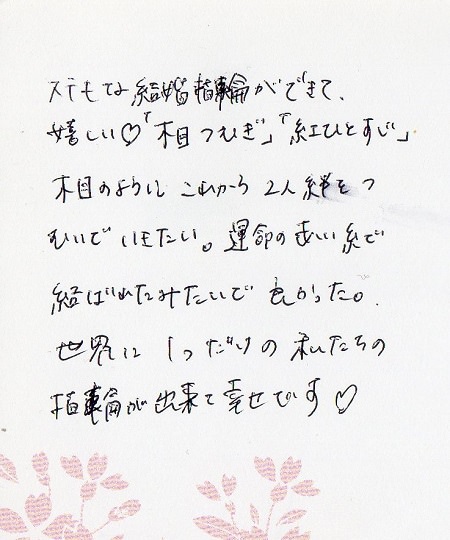 ステキな結婚指輪ができて、
嬉しい♡「木目つむぎ」「紅ひとすじ」
木目のように これから 2人絆をつ
むいでいきたい。運命の赤い糸で
結ばれたみたいで 良かった。
世界に 1つだけの 私たちの
指輪が出来て幸せです♡